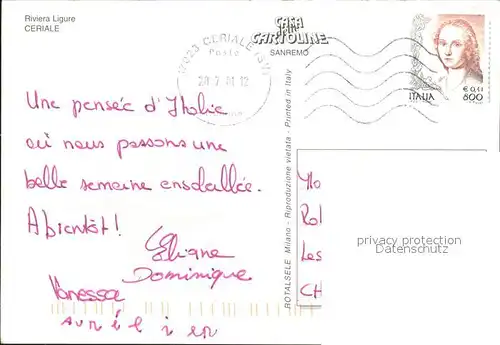 Riviera Ligure
CERIALE
CASA
delle
CARTOLINE
SANREMO
CERIALE (SV)
Poste
12
ITALIA
€ 0,41
800
Une pensée d'Italie
où nous passons une
belle semaine ensoleillée.
A bientôt!
Eliane
Dominique
Vanessa
Aurélien
ROTALSELE Milano - Riproduzione vietata - Printed in Italy
Les
CH
privacy protection
Datenschutz